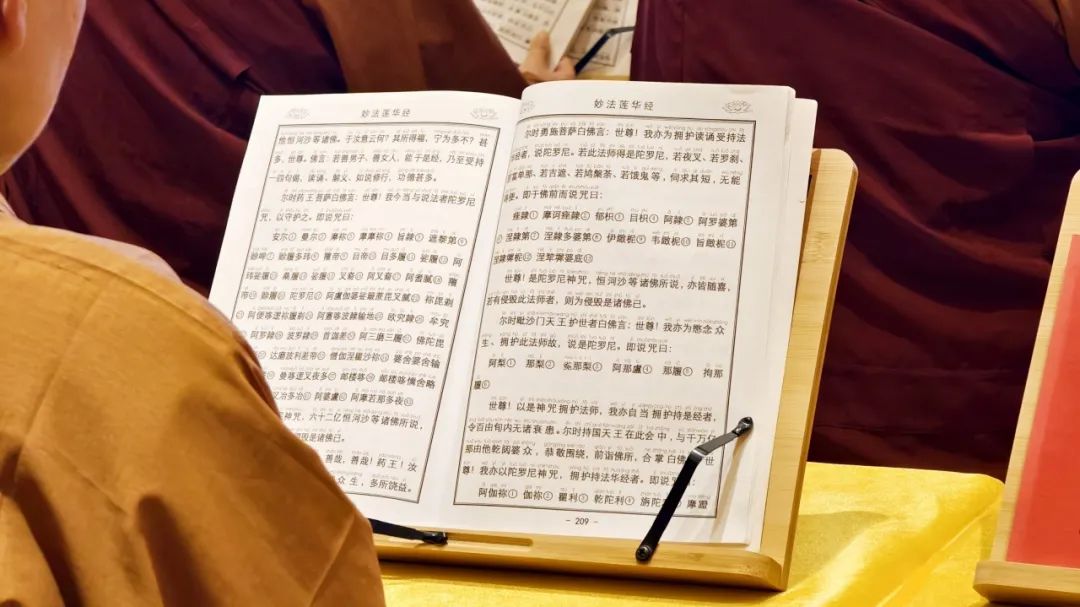 妙法莲华经
他恒河沙等诸佛。于汝意云何？其所得福，宁为多不？甚
多，世尊。佛言：若善男子、善女人，能于是经，乃至受持
一四句偈，读诵、解义、如说修行，功德甚多。
尔时药王菩萨白佛言：世尊！我今当与说法者陀罗尼
咒，以守护之。即说咒曰：
安尔① 曼尔② 摩祢③ 摩摩祢④ 旨隸⑤ 遮黎第⑥
咩⑦ 履多玮⑧ 帝⑨ 目帝⑩ 目多履⑪ 娑履⑫ 阿
玮娑履⑬ 桑履⑭ 娑履⑮ 叉裔⑯ 阿叉裔⑰ 阿耆腻⑱
帝⑲ 履⑳ 陀罗尼㉑ 阿卢伽婆娑簸蔗毗叉腻㉒ 祢毗剃
阿便哆逻祢履剃 阿亶哆波隸输地 欧究隸 牟究
阿罗隸 波罗隸 首迦差 阿三磨三履 佛陀毗
达磨波利差帝 僧伽涅瞿沙祢 婆舍婆舍输
曼哆逻叉夜多 邮楼哆 邮楼哆憍舍略
叉冶多冶 阿婆卢 阿摩若那多夜
神咒，六十二亿恒河沙等诸佛所说，
毁是诸佛已。
善哉，善哉！药王！汝
众生，多所饶益。
妙法莲华经
尔时勇施菩萨白佛言：世尊！我亦为拥护读诵受持法
经者，说陀罗尼。若此法师得是陀罗尼，若夜叉、若罗刹、
富单那、若吉蔗、若鸠槃茶、若饿鬼等，伺求其短，无能
便。即于佛前而说咒曰：
痤隸① 摩诃痤隸② 郁枳③ 目枳④ 阿隸⑤ 阿罗婆第
涅隸第⑦ 涅隸多婆第⑧ 伊緻柅⑨ 韦緻柅⑩ 旨緻柅⑪
涅隸墀柅⑫ 涅犁墀婆底⑬
世尊！是陀罗尼神咒，恒河沙等诸佛所说，亦皆随喜，
若有侵毁此法师者，则为侵毁是诸佛已。
尔时毗沙门天王护世者白佛言：世尊！我亦为愍念众
生、拥护此法师故，说是陀罗尼。即说咒曰：
阿梨① 那梨② 㝹那梨③ 阿那卢④ 那履⑤ 拘那
履⑥
世尊！以是神咒拥护法师，我亦自当拥护持是经者，
令百由旬内无诸衰患。尔时持国天王在此会中，与千万亿
那由他乾闼婆众，恭敬围绕，前诣佛所，合掌白佛 世
尊！我亦以陀罗尼神咒，拥护持法华经者。即说咒曰：
阿伽祢① 伽祢② 瞿利③ 乾陀利④ 旃陀利 摩蹬
- 209 -